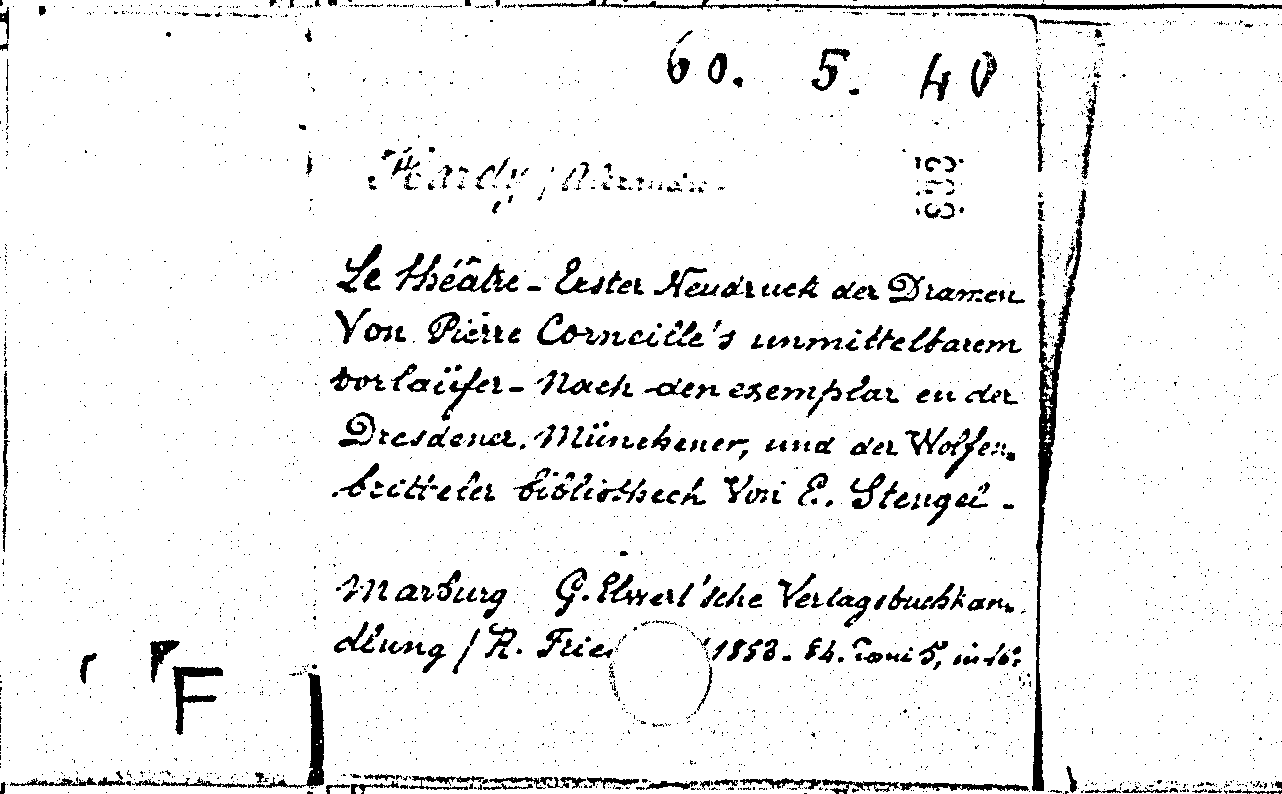 60. 5. 40
Hardy
Le théâtre - Erster Neudruck der Dramen
Von Pierre Corneille's unmittelbarem
vorlaüfer - Nach den exemplar en der
Dresdener. Münchener, und der Wolfen-
britteler bibliothech Von E. Stengel -
Marburg G. Elwert'sche Verlagsbuchhan-
dlung / R. Frie 1883 - 84. Tomi 5, in 16º
F